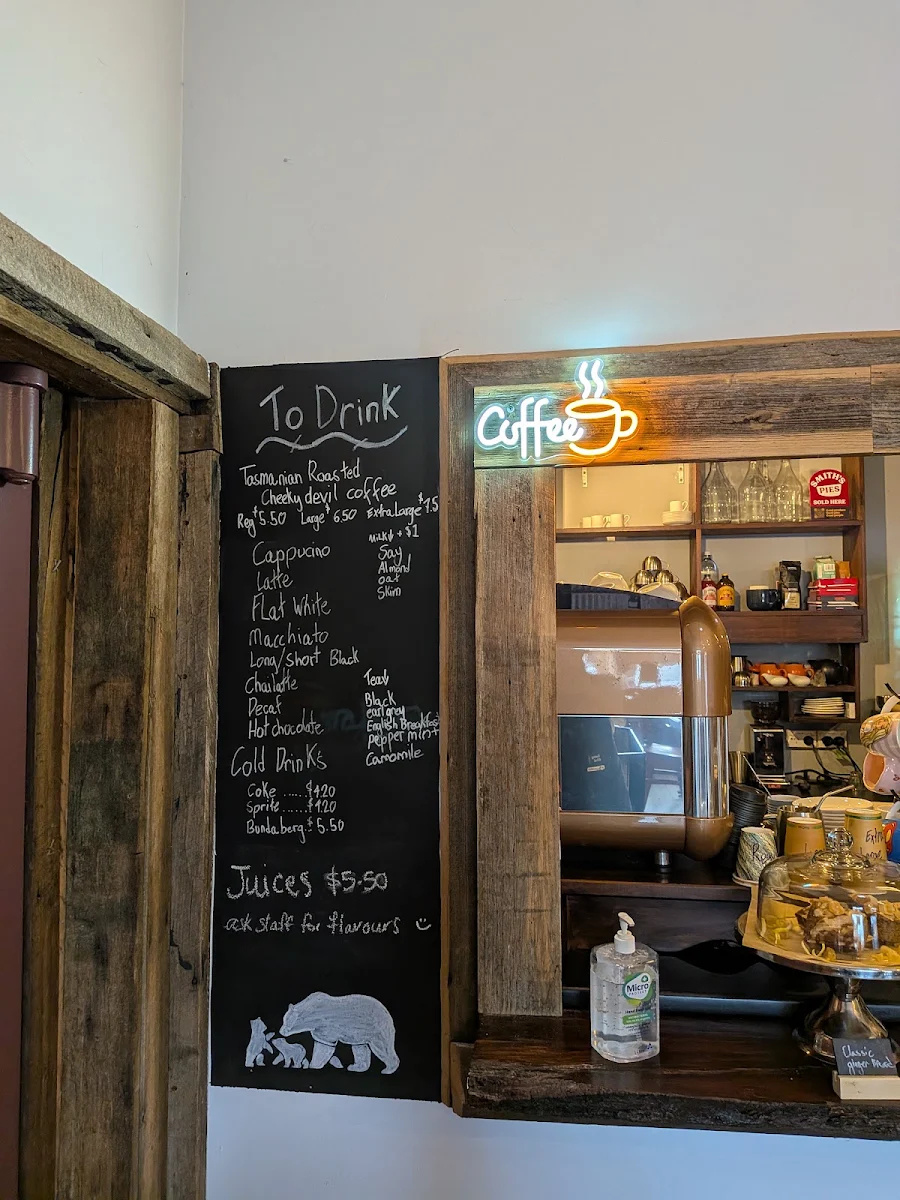 To Drink
Tasmanian Roasted
Cheeky devil coffee
Reg $5.50 Large $6.50 Extra Large $7.5
Milk + $1
Cappucino
Soy
Latte
Almond
oat
Flat White
Skim
Macchiato
Long/Short Black
Chai latte
Decaf
Hot chocolate
Teas
Black
earl grey
English Breakfast
peppermint
Camomile
Cold Drinks
Coke ..... $4.20
Sprite ..... $4.20
Bundaberg.. $5.50
Juices $5.50
ask staff for flavours
Coffee
SMITH'S
PIES
SOLD HERE
Micro
Classic
ginger Bread